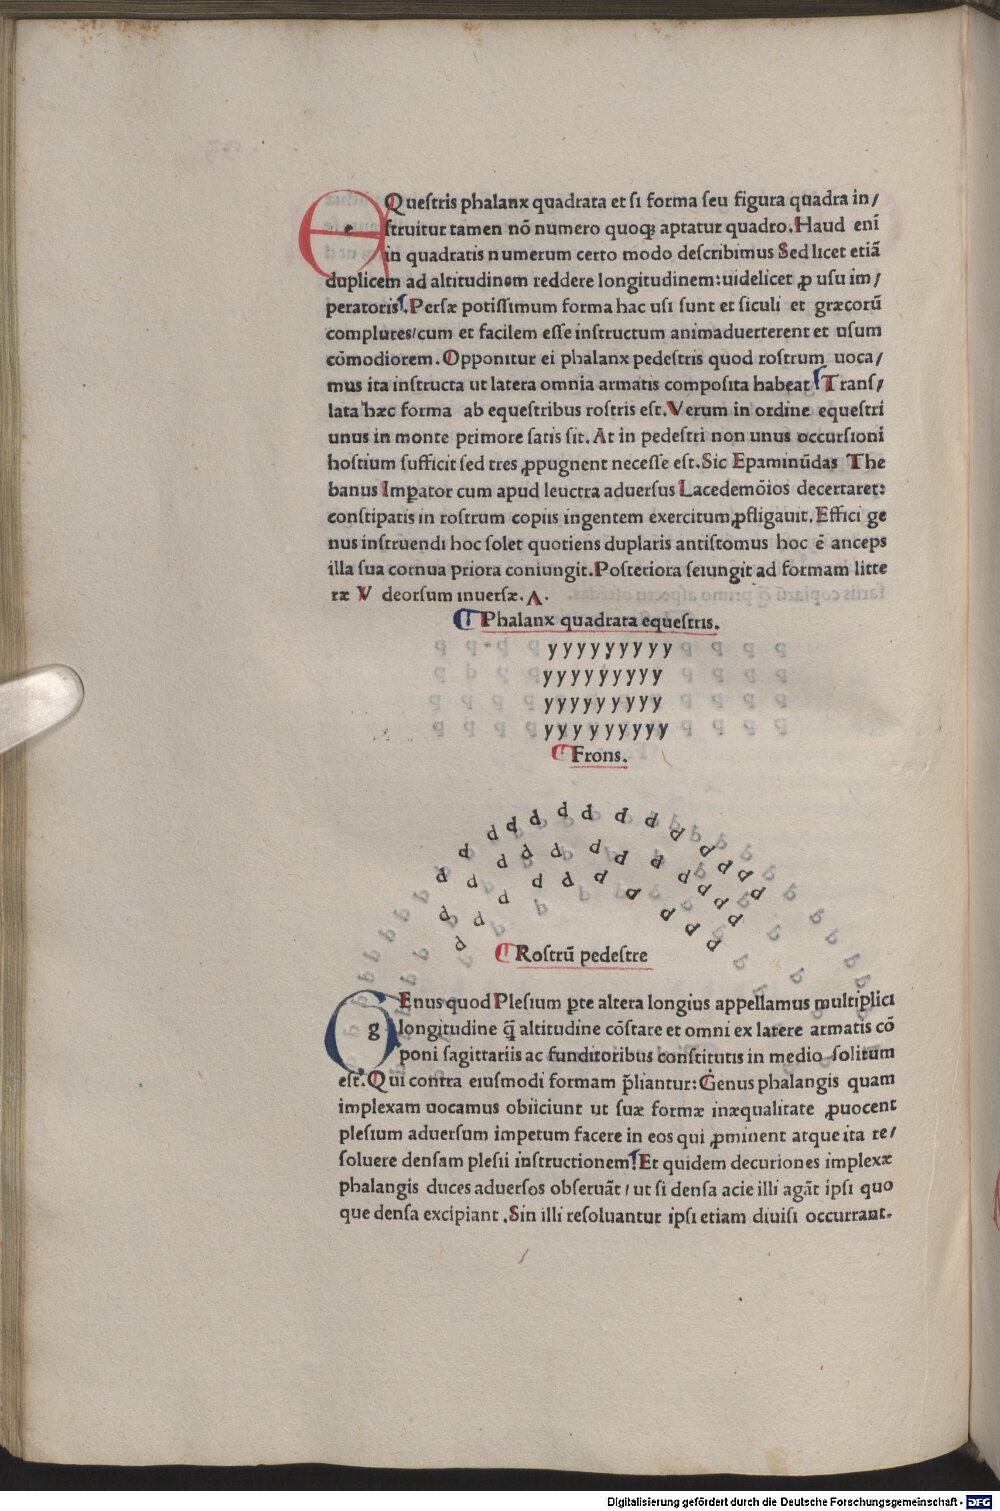 EQueſtris phalanx quadrata et ſi forma ſeu figura quadra in/
ſtruitur tamen nõ numero quoqꝫ aptatur quadro. Haud enĩ
in quadratis numerum certo modo deſcribimus Sed licet etiã
duplicem ad altitudinem reddere longitudinem: uidelicet ꝓ uſu im/
peratoris. Perſæ potiſſimum forma hac uſi ſunt et ſiculi et græcorũ
complures/cum et facilem eſſe inſtructum animaduerterent et uſum
cõmodiorem. Opponitur ei phalanx pedeſtris quod roſtrum uoca/
mus ita inſtructa ut latera omnia armatis compoſita habeat Tranſ/
lata hæc forma ab equeſtribus roſtris eſt. Verum in ordine equeſtri
unus in monte primore ſatis ſit. At in pedeſtri non unus occurſioni
hoſtium ſufficit ſed tres ꝓpugnent neceſſe eſt. Sic Epaminũdas The
banus Imꝑator cum apud leuctra aduerſus Lacedemõios decertaret:
conſtipatis in roſtrum copiis ingentem exercitum ꝓfligauit. Effici ge
nus inſtruendi hoc ſolet quotiens duplaris antiſtomus hoc ẽ anceps
illa ſua cornua priora coniungit. Poſteriora ſeiungit ad formam litte
ræ V deorſum inuerſæ. Λ.
Phalanx quadrata equeſtris.
y y y y y y y y y
y y y y y y y y y
y y y y y y y y y
y y y y y y y y y
Frons.
Roſtrũ pedeſtre
GEnus quod Pleſium ꝑte altera longius appellamus multiplici
longitudine q̃ altitudine cõſtare et omni ex latere armatis cõ
poni ſagittariis ac funditoribus conſtitutis in medio ſolitum
eſt. Qui contra eiuſmodi formam p̃liantur: Genus phalangis quam
implexam uocamus obiiciunt ut ſuæ formæ inæqualitate ꝓuocent
pleſium aduerſum impetum facere in eos qui ꝓminent atque ita re/
ſoluere denſam pleſii inſtructionem. Et quidem decuriones implexæ
phalangis duces aduerſos obſeruãt / ut ſi denſa acie illi agãt ipſi quo
que denſa excipiant. Sin illi reſoluantur ipſi etiam diuiſi occurrant.
Digitalisierung gefördert durch die Deutsche Forschungsgemeinschaft - DFG